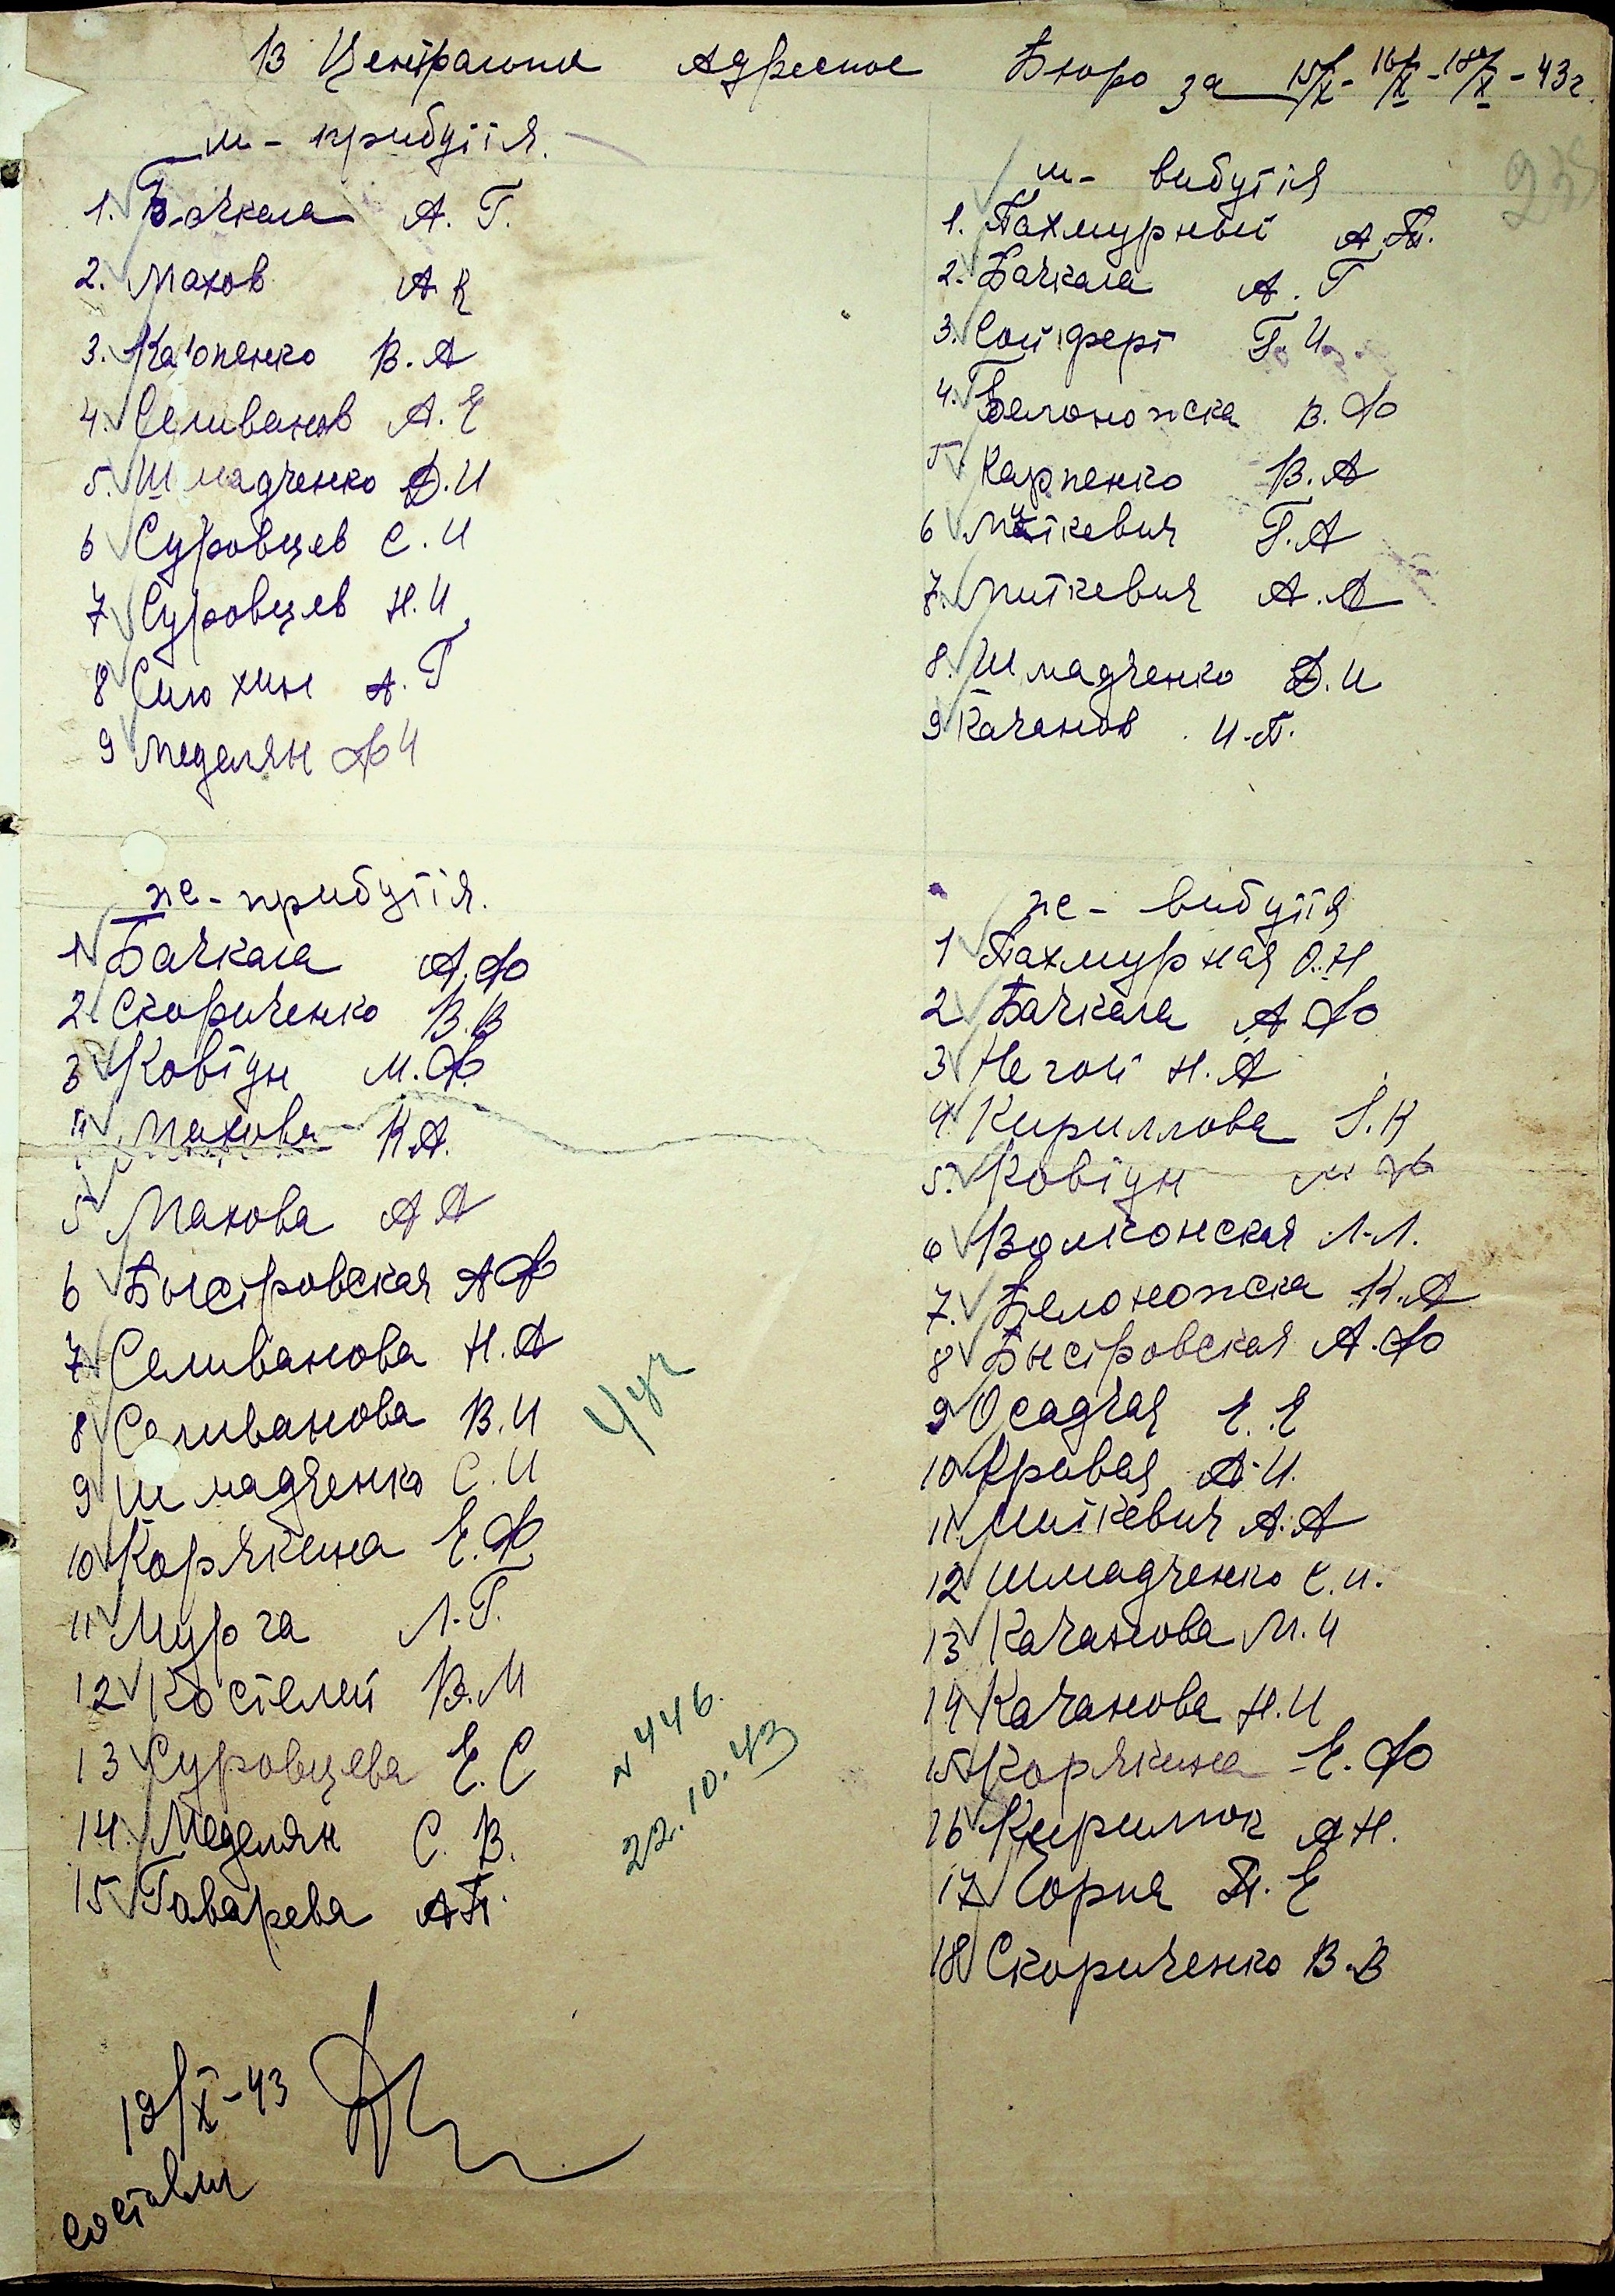 В Центральне Адресное Бюро за 15/X - 16/X - 18/X - 43 г.
м - прибутія.
1. Бачкала А. Г.
2. Махов А К
3. Карпенко В. А
4. Селиванов А. Е
5. Шмадченко Д. И
6 Суровцев С. И
7 Суровцев Н. И
8 Силюхин А. Г
9 Меделян Ф И
м - вибутія
1. Пахмурный А. П.
2. Бачкала А. Г
3. Сойферт Г. И
4. Белоножска В. Ф
5 Карпенко В. А
6 Миткевич Г. А
7. Миткевич А. А
8. Шмадченко Д. И
9 Качанов И. П.
же - прибутія.
1 Бачкала А. Ф
2. Скориченко В. В
3 Ковтун М. Ф.
4 Махова К А.
5 Махова А А
6 Быстровская А Ф
7 Селиванова Н. А
8 Селиванова В. И
9 Шмадченко С. И
10 Корякина Е. Ф
11 Мурга Л. Г.
12 Костелей В. М
13 Суровцева Е. С
14. Меделян С. В.
15 Гаварева А П.
же - вибутія
1 Пахмурная О. Н
2 Бачкала А Ф
3 Негой Н. А
4 Кириллова Г. К
5. Ковтун М Ф
6 Волконская Л. Л.
7. Белоножска К. А
8 Быстровская А. Ф
9 Осадчая Е. Е
10 Кривая А. И.
11. Миткевич А. А
12 Шмадченко С. И.
13 Качанова М. И
14 Качанова Н. И
15 Корякина Е. Ф
16 Кирилюк А Н.
17 Чорна П. Е
18 Скориченко В. В
4 уч
N 446.
22. 10. 43
19/X - 43
составил